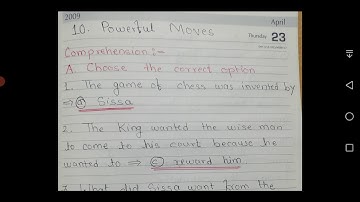 2009
April
10. Powerful Moves
Thursday 23
Comprehension :-
A. Choose the correct option
1. The game of chess was invented by
⇒ Sissa
2. The King wanted the wise man
to come to his court because he
wanted to ⇒ reward him
3. What did Sissa want from the